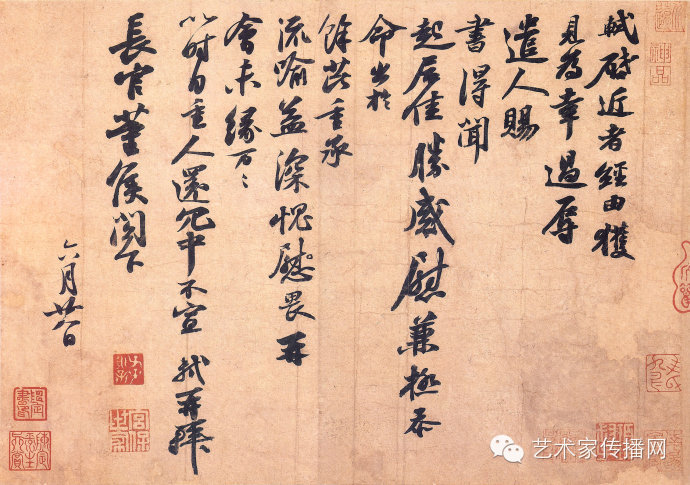 軾啟近者經由獲
見為幸過辱
遣人賜
書得聞
起居佳勝感慰兼極忝
命出於
餘芘重承
流喻益深愧慰畏再
會未緣万〻
以时自重人還冗中不宣 軾再拜
長官董侯閣下
六月廿八日
艺术家传播网